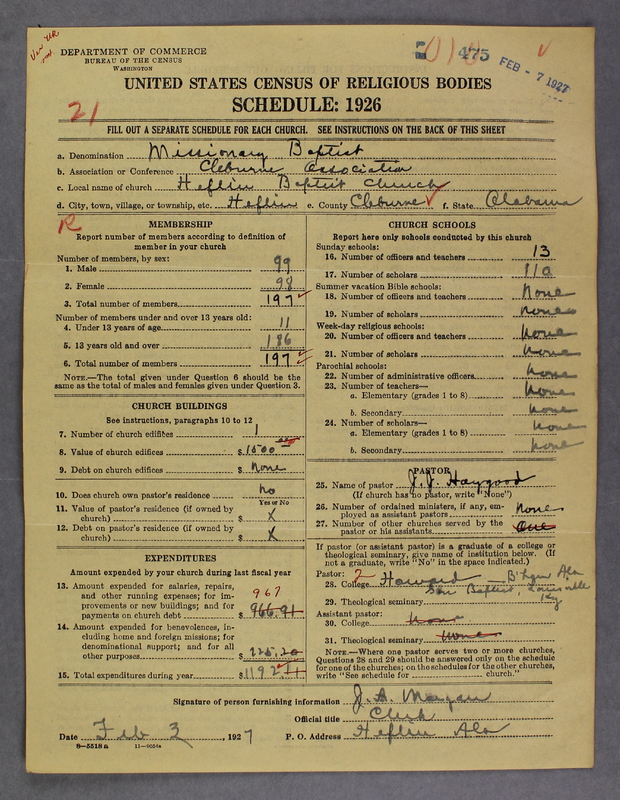 DEPARTMENT OF COMMERCE
BUREAU OF THE CENSUS
WASHINGTON
475
FEB - 7 1927
UNITED STATES CENSUS OF RELIGIOUS BODIES
SCHEDULE: 1926
21
FILL OUT A SEPARATE SCHEDULE FOR EACH CHURCH. SEE INSTRUCTIONS ON THE BACK OF THIS SHEET
a. Denomination Missionary Baptist
b. Association or Conference Cleburne Association
c. Local name of church Heflin Baptist Church
d. City, town, village, or township, etc. Heflin e. County Cleburne f. State Alabama
R
MEMBERSHIP
Report number of members according to definition of
member in your church
Number of members, by sex:
1. Male 99
2. Female 98
3. Total number of members 197
Number of members under and over 13 years old:
4. Under 13 years of age 11
5. 13 years old and over 186
6. Total number of members 197
NOTE.—The total given under Question 6 should be the
same as the total of males and females given under Question 3.
CHURCH BUILDINGS
See instructions, paragraphs 10 to 12
7. Number of church edifices 1
8. Value of church edifices $1500
9. Debt on church edifices $ None
10. Does church own pastor's residence No
Yes or No
11. Value of pastor's residence (if owned by
church) $ X
12. Debt on pastor's residence (if owned by
church) $ X
EXPENDITURES
Amount expended by your church during last fiscal year
13. Amount expended for salaries, repairs,
and other running expenses; for im-
provements or new buildings; and for
payments on church debt $ 966.91
967
14. Amount expended for benevolences, in-
cluding home and foreign missions; for
denominational support; and for all
other purposes 225.20
15. Total expenditures during year $1192.11
CHURCH SCHOOLS
Report here only schools conducted by this church
Sunday schools:
16. Number of officers and teachers 13
17. Number of scholars 110
Summer vacation Bible schools:
18. Number of officers and teachers None
19. Number of scholars None
Week-day religious schools:
20. Number of officers and teachers None
21. Number of scholars None
Parochial schools:
22. Number of administrative officers None
23. Number of teachers—
a. Elementary (grades 1 to 8) None
b. Secondary None
24. Number of scholars—
a. Elementary (grades 1 to 8) None
b. Secondary None
PASTOR
25. Name of pastor J. J. Haygood
(If church has no pastor, write "None")
26. Number of ordained ministers, if any, em-
ployed as assistant pastors None
27. Number of other churches served by the
pastor or his assistants One
If pastor (or assistant pastor) is a graduate of a college or
theological seminary, give name of institution below. (If
not a graduate, write "No" in the space indicated.)
Pastor:
28. College 2 Howard — B'Ham Ala
Sou Baptist, Louisville
29. Theological seminary Ky
Assistant pastor:
30. College None
31. Theological seminary None
NOTE.—Where one pastor serves two or more churches,
Questions 28 and 29 should be answered only on the schedule
for one of the churches; on the schedules for the other churches,
write "See schedule for church."
Signature of person furnishing information J. A. Morgan
Official title Clerk
Date Feb 3, 1927 P. O. Address Heflin Ala
8—5518a 11—9034a